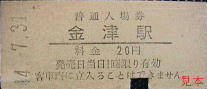 普通入場券
金津駅
料金 20円
発売日当日1回限り有効
客車内に立入ることはできません
44.7.31
見本